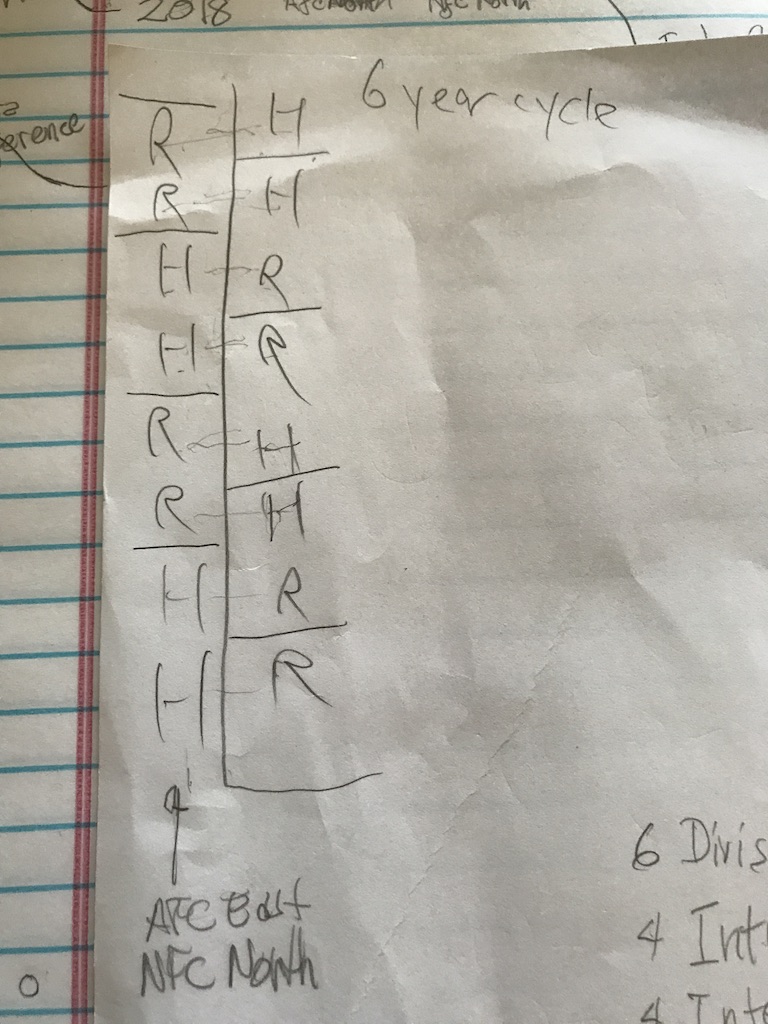 2018 AFC North NFC North
erence
6 year cycle
R H
R H
H R
H R
R H
R H
H R
H R
AFC East
NFC North
6 Divis
4 Int
4 Inte